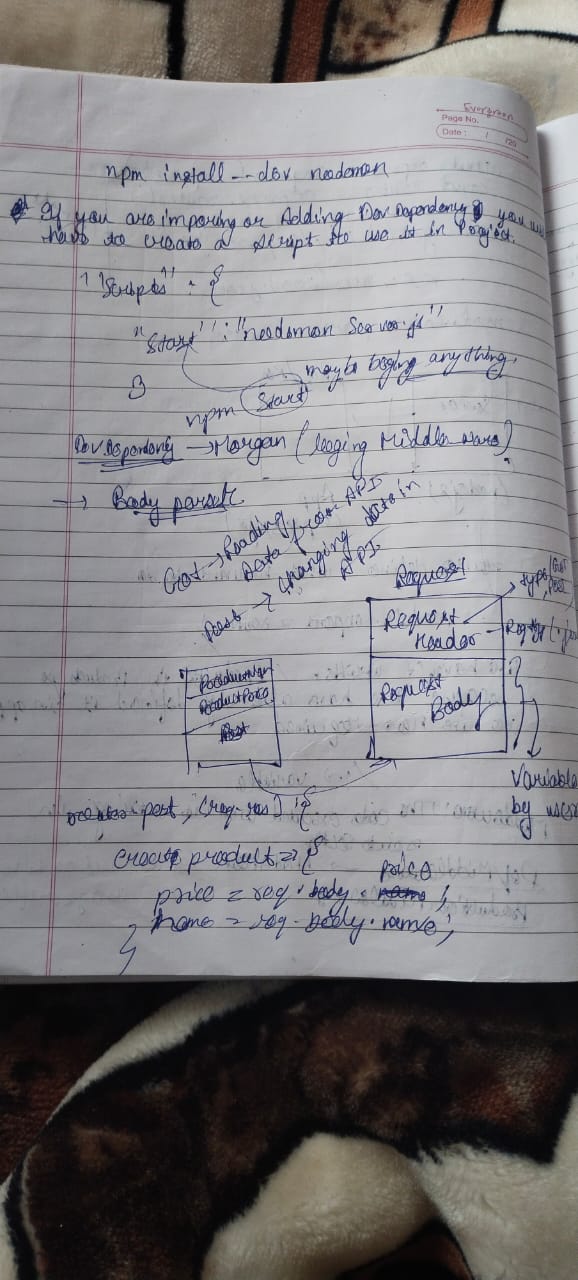 Evergreen
Page No.
Date : / /20
npm install --dev nodemon
If you are imporing or Adding Dev Dependency you
have to create a script to use it in Project.
"Scripts" : {
"Start" : "nodemon Server.js"
}
maybe anything.
npm Start
Dev.Dependency → Morgan (loging Middleware)
→ Body parser
Get → Reading Data from API
Post → Changing data in API.
Request
Request Header
type/Get, Post/
Request Body
Variable by user
Product Price
Post
post, (req-res) {
Create product = {
price
price = req.body. name ;
name = req.body.name;
}